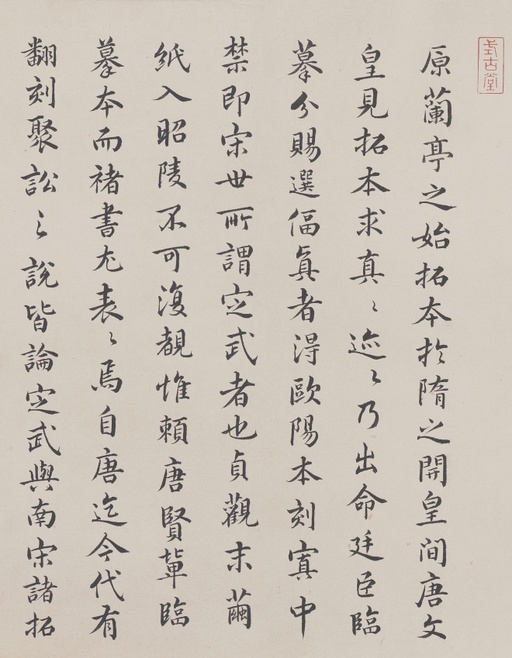 原蘭亭之始拓本於隋之開皇間唐文
皇見拓本求真〻迹〻乃出命廷臣臨
摹分賜選偪真者得歐陽本刻寘中
禁即宋世所謂定武者也貞觀末繭
紙入昭陵不可復覩惟賴唐賢葷臨
摹本而褚書尤表〻焉自唐迄今代有
翻刻聚訟〻說皆論定武與南宋諸拓